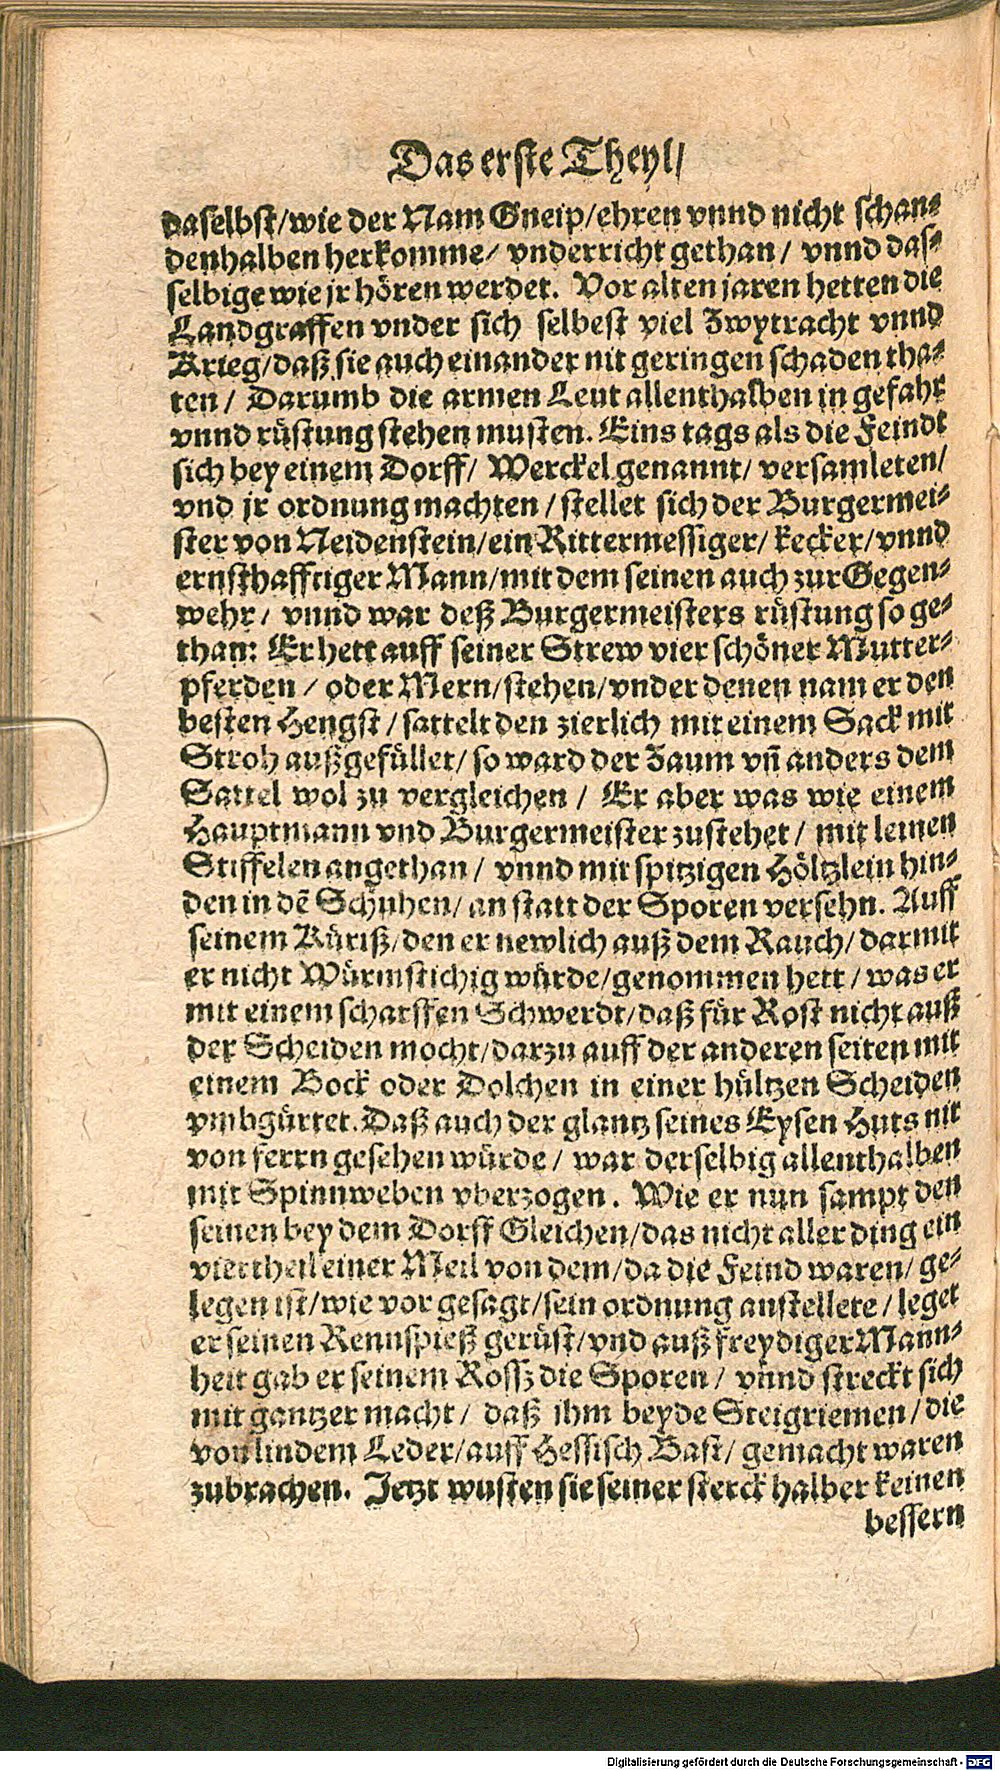 Das erste Theyl/
daselbst/wie der Nam Gneip/ehren vnnd nicht schan⸗
denhalben herkomme/ vnderricht gethan/ vnnd das⸗
selbige wie jr hören werdet. Vor alten jaren hetten die
Landgraffen vnder sich selbest viel Zwytracht vnnd
Krieg/daß sie auch einander nit geringen schaden tha⸗
ten/ Darumb die armen Leut allenthalben in gefahr
vnnd rüstung stehen musten. Eins tags als die Feindt
sich bey einem Dorff/ Werckel genannt/ versamleten/
vnd jr ordnung machten/stellet sich der Burgermei⸗
ster von Neidenstein/ein Rittermessiger/ kecker/vnnd
ernsthafftiger Mann/mit dem seinen auch zur Gegen⸗
wehr/ vnnd war deß Burgermeisters rüstung so ge⸗
than: Er hett auff seiner Strew vier schöner Mutter⸗
pferden/ oder Mern/stehen/vnder denen nam er den
besten Hengst/sattelt den zierlich mit einem Sack mit
Stroh außgefüllet/ so ward der Zaum vñ anders dem
Sattel wol zu vergleichen/ Er aber was wie einem
Hauptmann vnd Burgermeister zustehet/ mit leinen
Stiffelen angethan/ vnnd mit spitzigen Höltzlein hin⸗
den in dē Schuhen/ an statt der Sporen versehn. Auff
seinem Küriß/den er newlich auß dem Rauch/darmit
er nicht Würmstichig würde/genommen hett/was er
mit einem scharffen Schwerdt/daß für Rost nicht auß
der Scheiden mocht/darzu auff der anderen seiten mit
einem Bock oder Dolchen in einer hültzen Scheiden
vmbgürtet. Daß auch der glantz seines Eysen Huts nit
von ferrn gesehen würde/ war derselbig allenthalben
mit Spinnweben vberzogen. Wie er nun sampt den
seinen bey dem Dorff Gleichen/das nicht aller ding ein
viertheil einer Meil von dem/da die Feind waren/ ge⸗
legen ist/wie vor gesagt/sein ordnung anstellete/leget
er seinen Rennspieß gerüst/vnd auß freydiger Mann⸗
heit gab er seinem Rossz die Sporen/ vnnd streckt sich
mit gantzer macht/ daß ihm beyde Steigriemen/die
von lindem Leder/auff Hessisch Bast/ gemacht waren
zubrachen. Jetzt wusten sie seiner sterck halber keinen
bessern
Digitalisierung gefördert durch die Deutsche Forschungsgemeinschaft - DFG